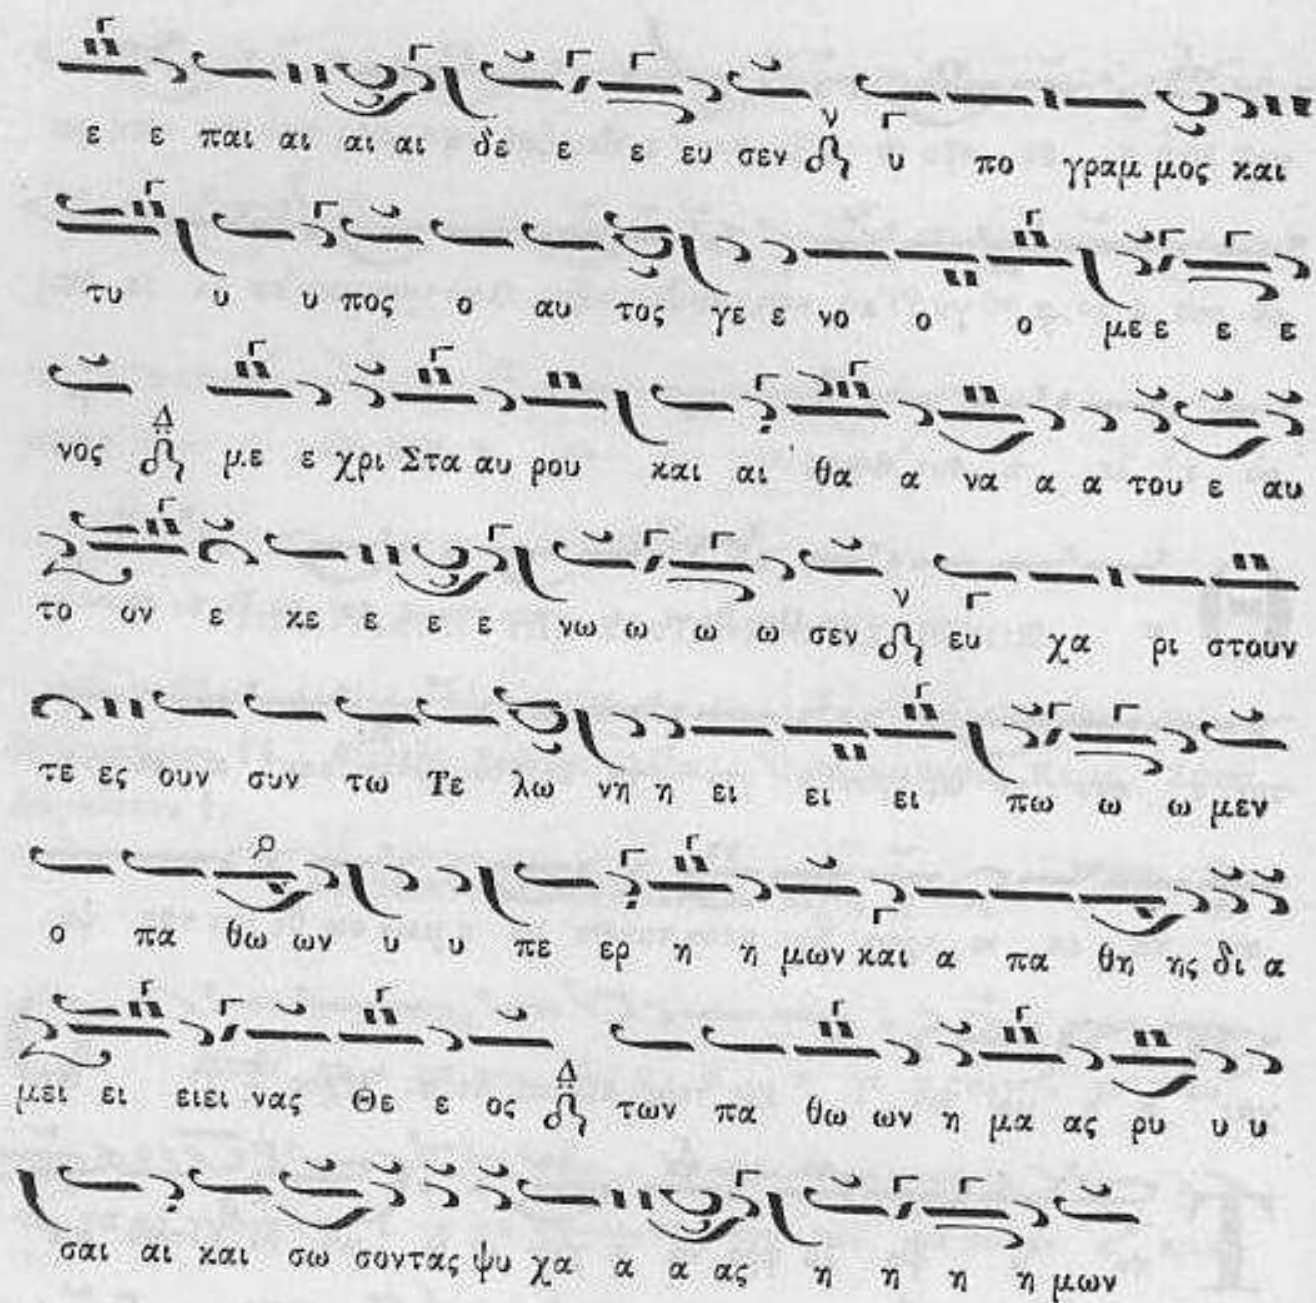 ε ε παι αι αι αι δε ε ε ευ σεν ν υ πο γραμ μος και
τυ υ υ πος ο αυ τος γε ε νο ο ο με ε ε ε
νος Δ με ε χρι Στα αυ ρου και αι θα α να α α του ε αυ
το ον ε κε ε ε ε νω ω ω ω σεν ν ευ χα ρι στουν
τε ες ουν συν τω Τε λω νη η ει ει ει πω ω ω μεν
ο πα θω ων υ υ πε ερ η η μων και α πα θη ης δι α
μει ει ειει νας Θε ε ος Δ των πα θω ων η μα ας ρυ υ υ
σαι αι και σω σοντας ψυ χα α α ας η η η η μων